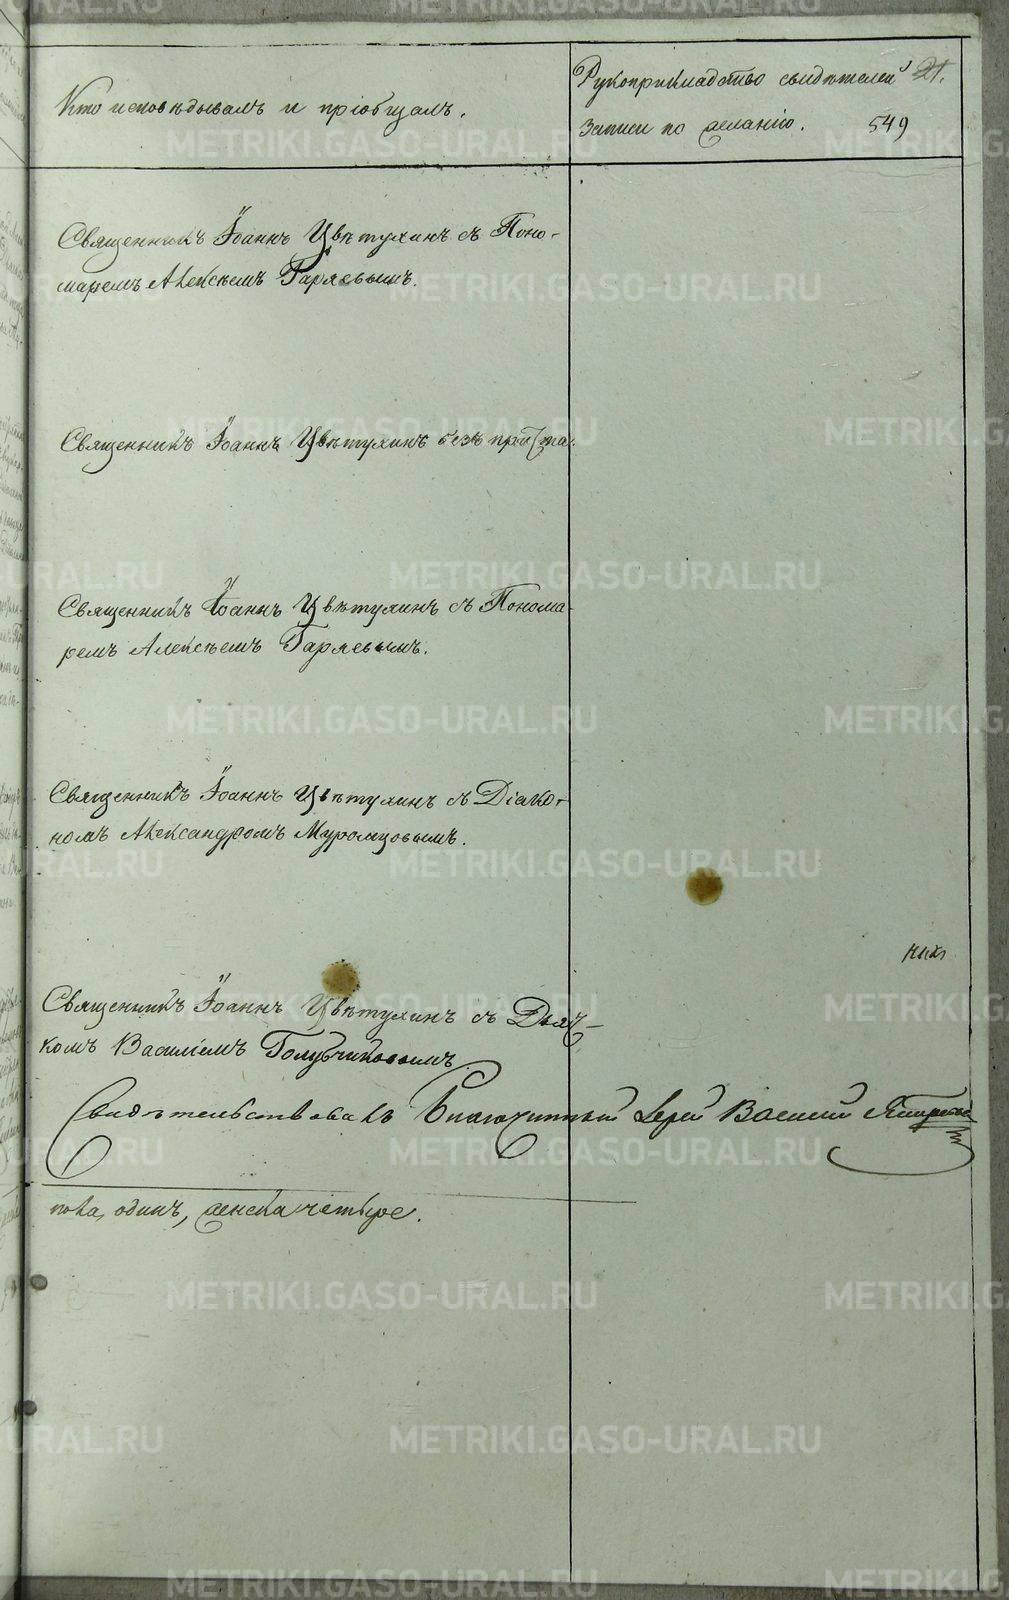 Кто исповѣдывалъ и пріобщалъ.
Рукоприкладство свидѣтелей 21.
записи по желанію. 549
Священникъ Іоаннъ Цвѣтухинъ съ Поно-
маремъ Алексѣемъ Гаряевымъ.
Священникъ Іоаннъ Цвѣтухинъ безъ причта.
Священникъ Іоаннъ Цвѣтухинъ съ Понома-
ремъ Алексѣемъ Гаряевымъ.
Священникъ Іоаннъ Цвѣтухинъ съ Діако-
номъ Александромъ Муромцовымъ.
Священникъ Іоаннъ Цвѣтухинъ съ Дьяч-
комъ Василіемъ Голубчиковымъ.
Свидѣтельствовалъ Благочинный Іерей Василій
пола, одинъ, женска четыре.
METRIKI.GASO-URAL.RU